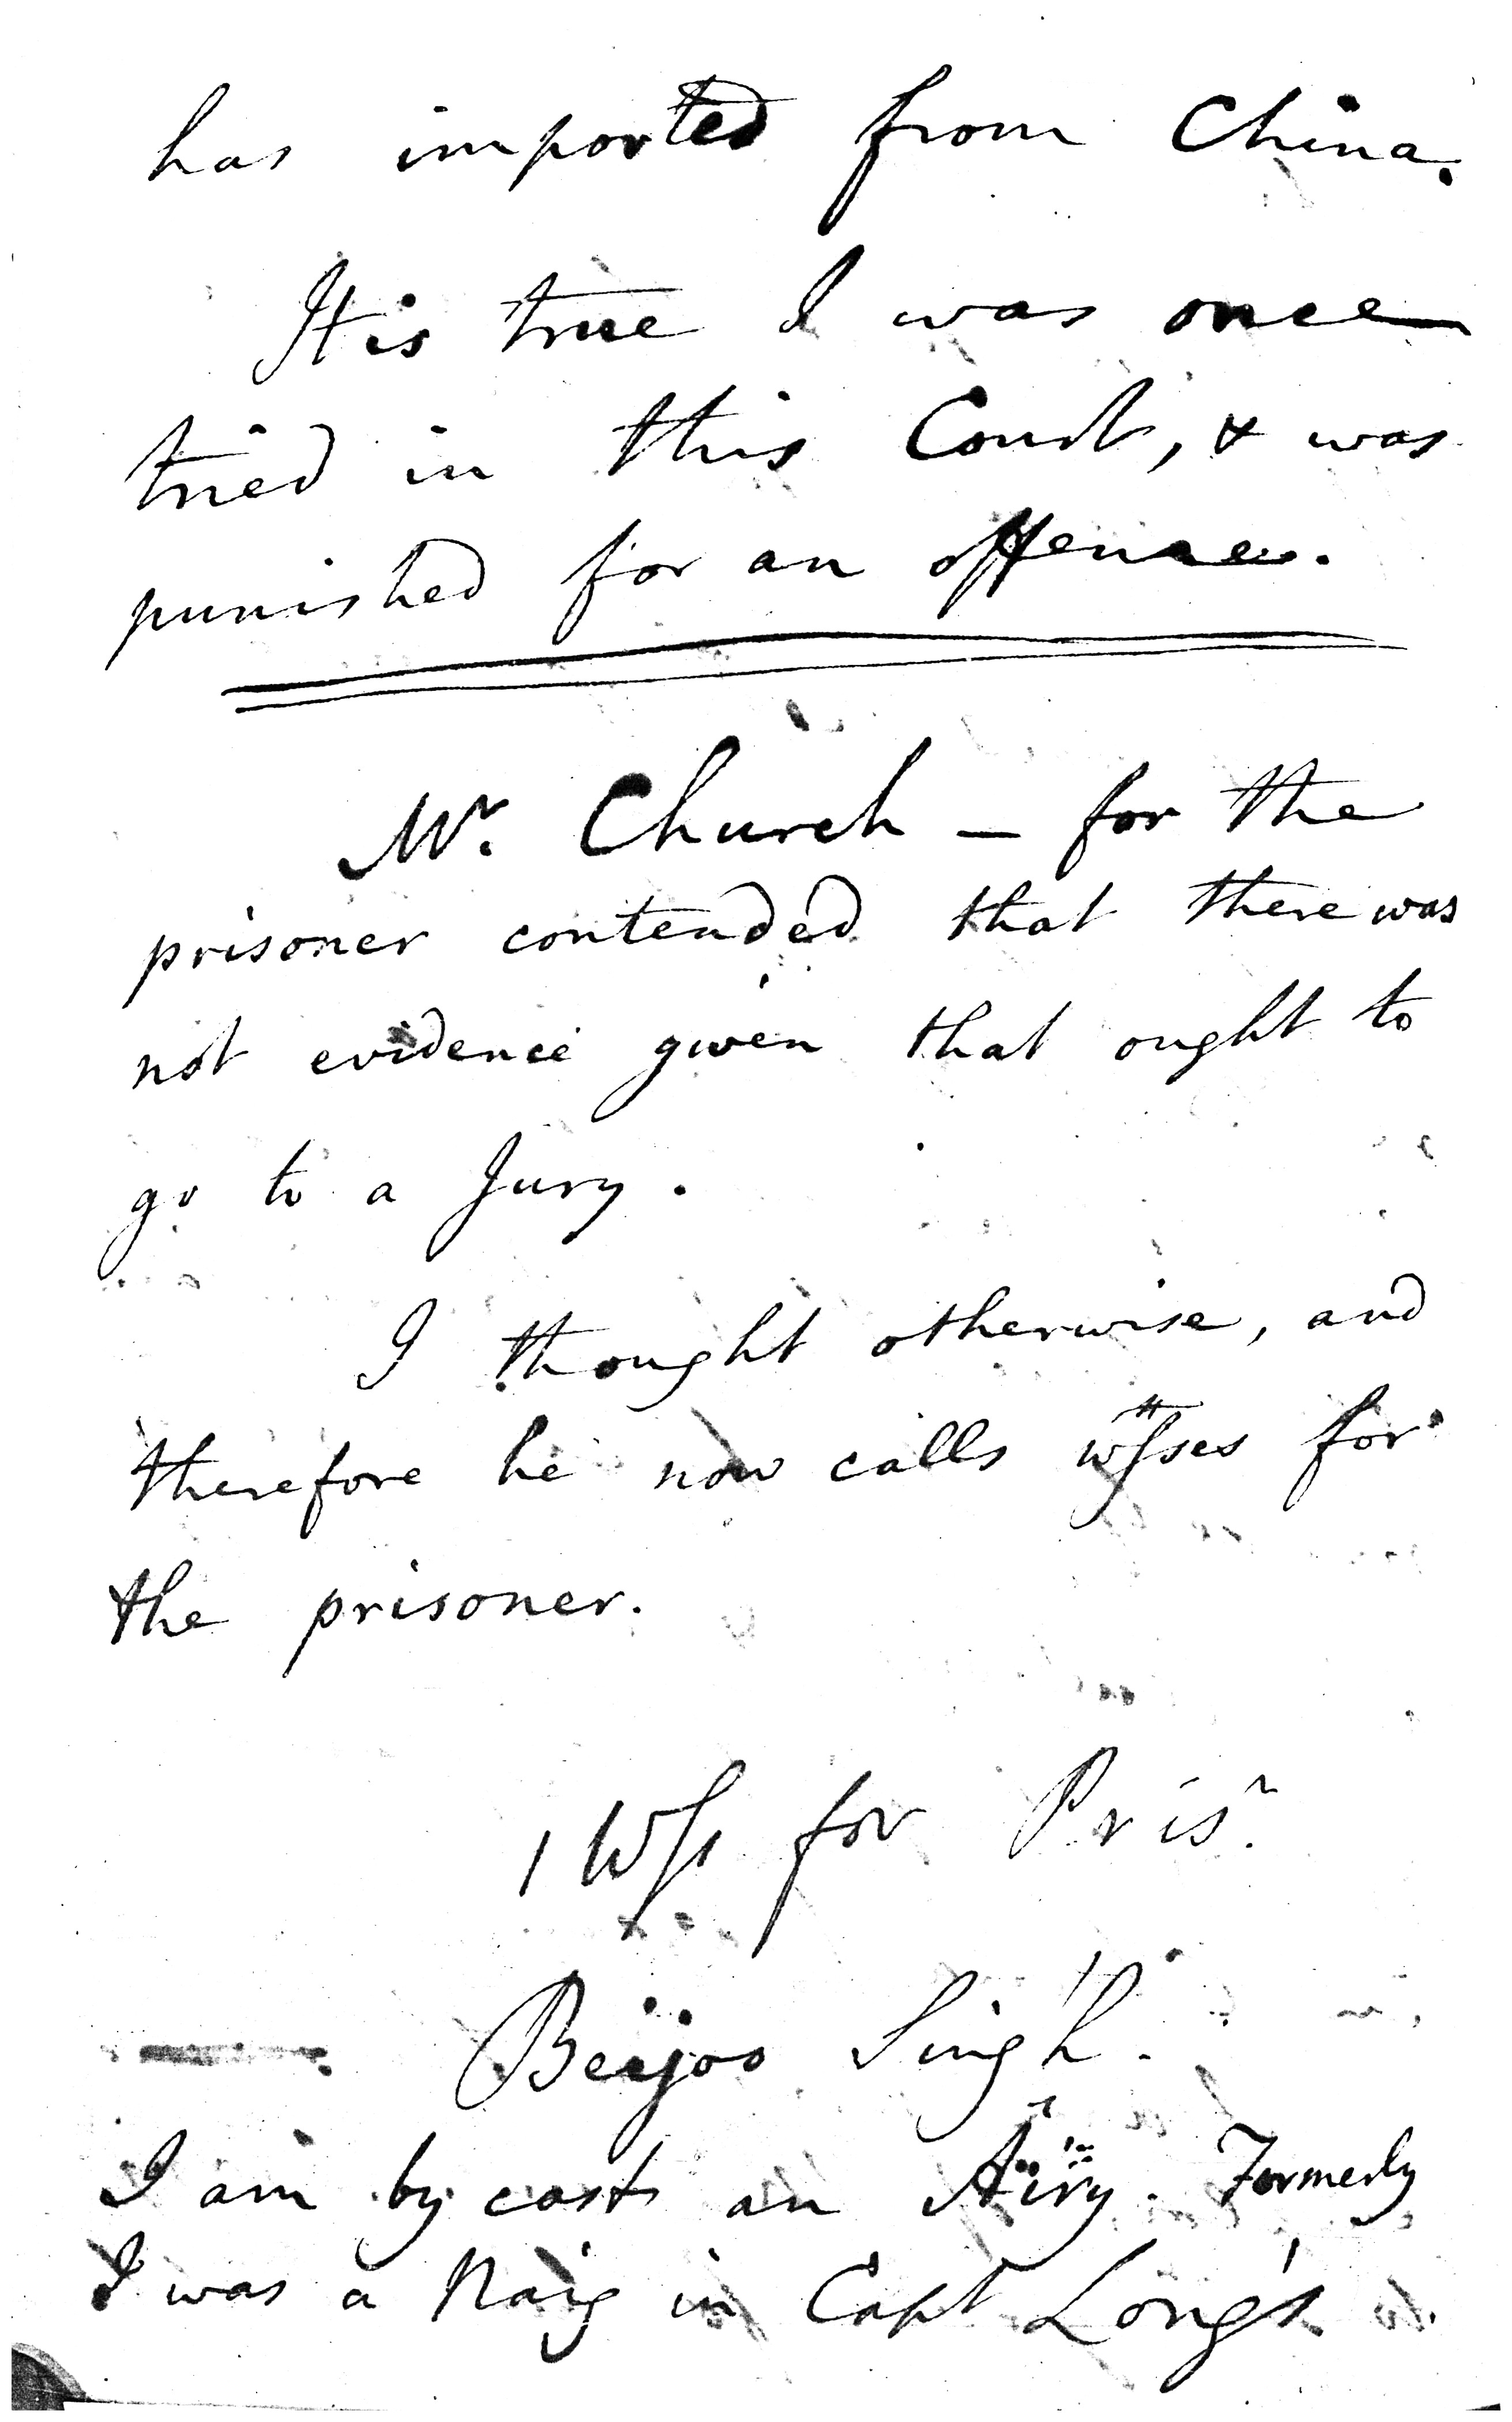 has imported from China.
It is true I was once
tried in this Court, & was
punished for an offence.
Mr. Church — for the
prisoner contended that there was
not evidence given that ought to
go to a Jury.
I thought otherwise, and
therefore he now calls wttsses for
the prisoner.
1 Wss for Prisr.
Beijoo Singh.
I am by cast an Airy. Formerly
I was a Naig in Capt Long's